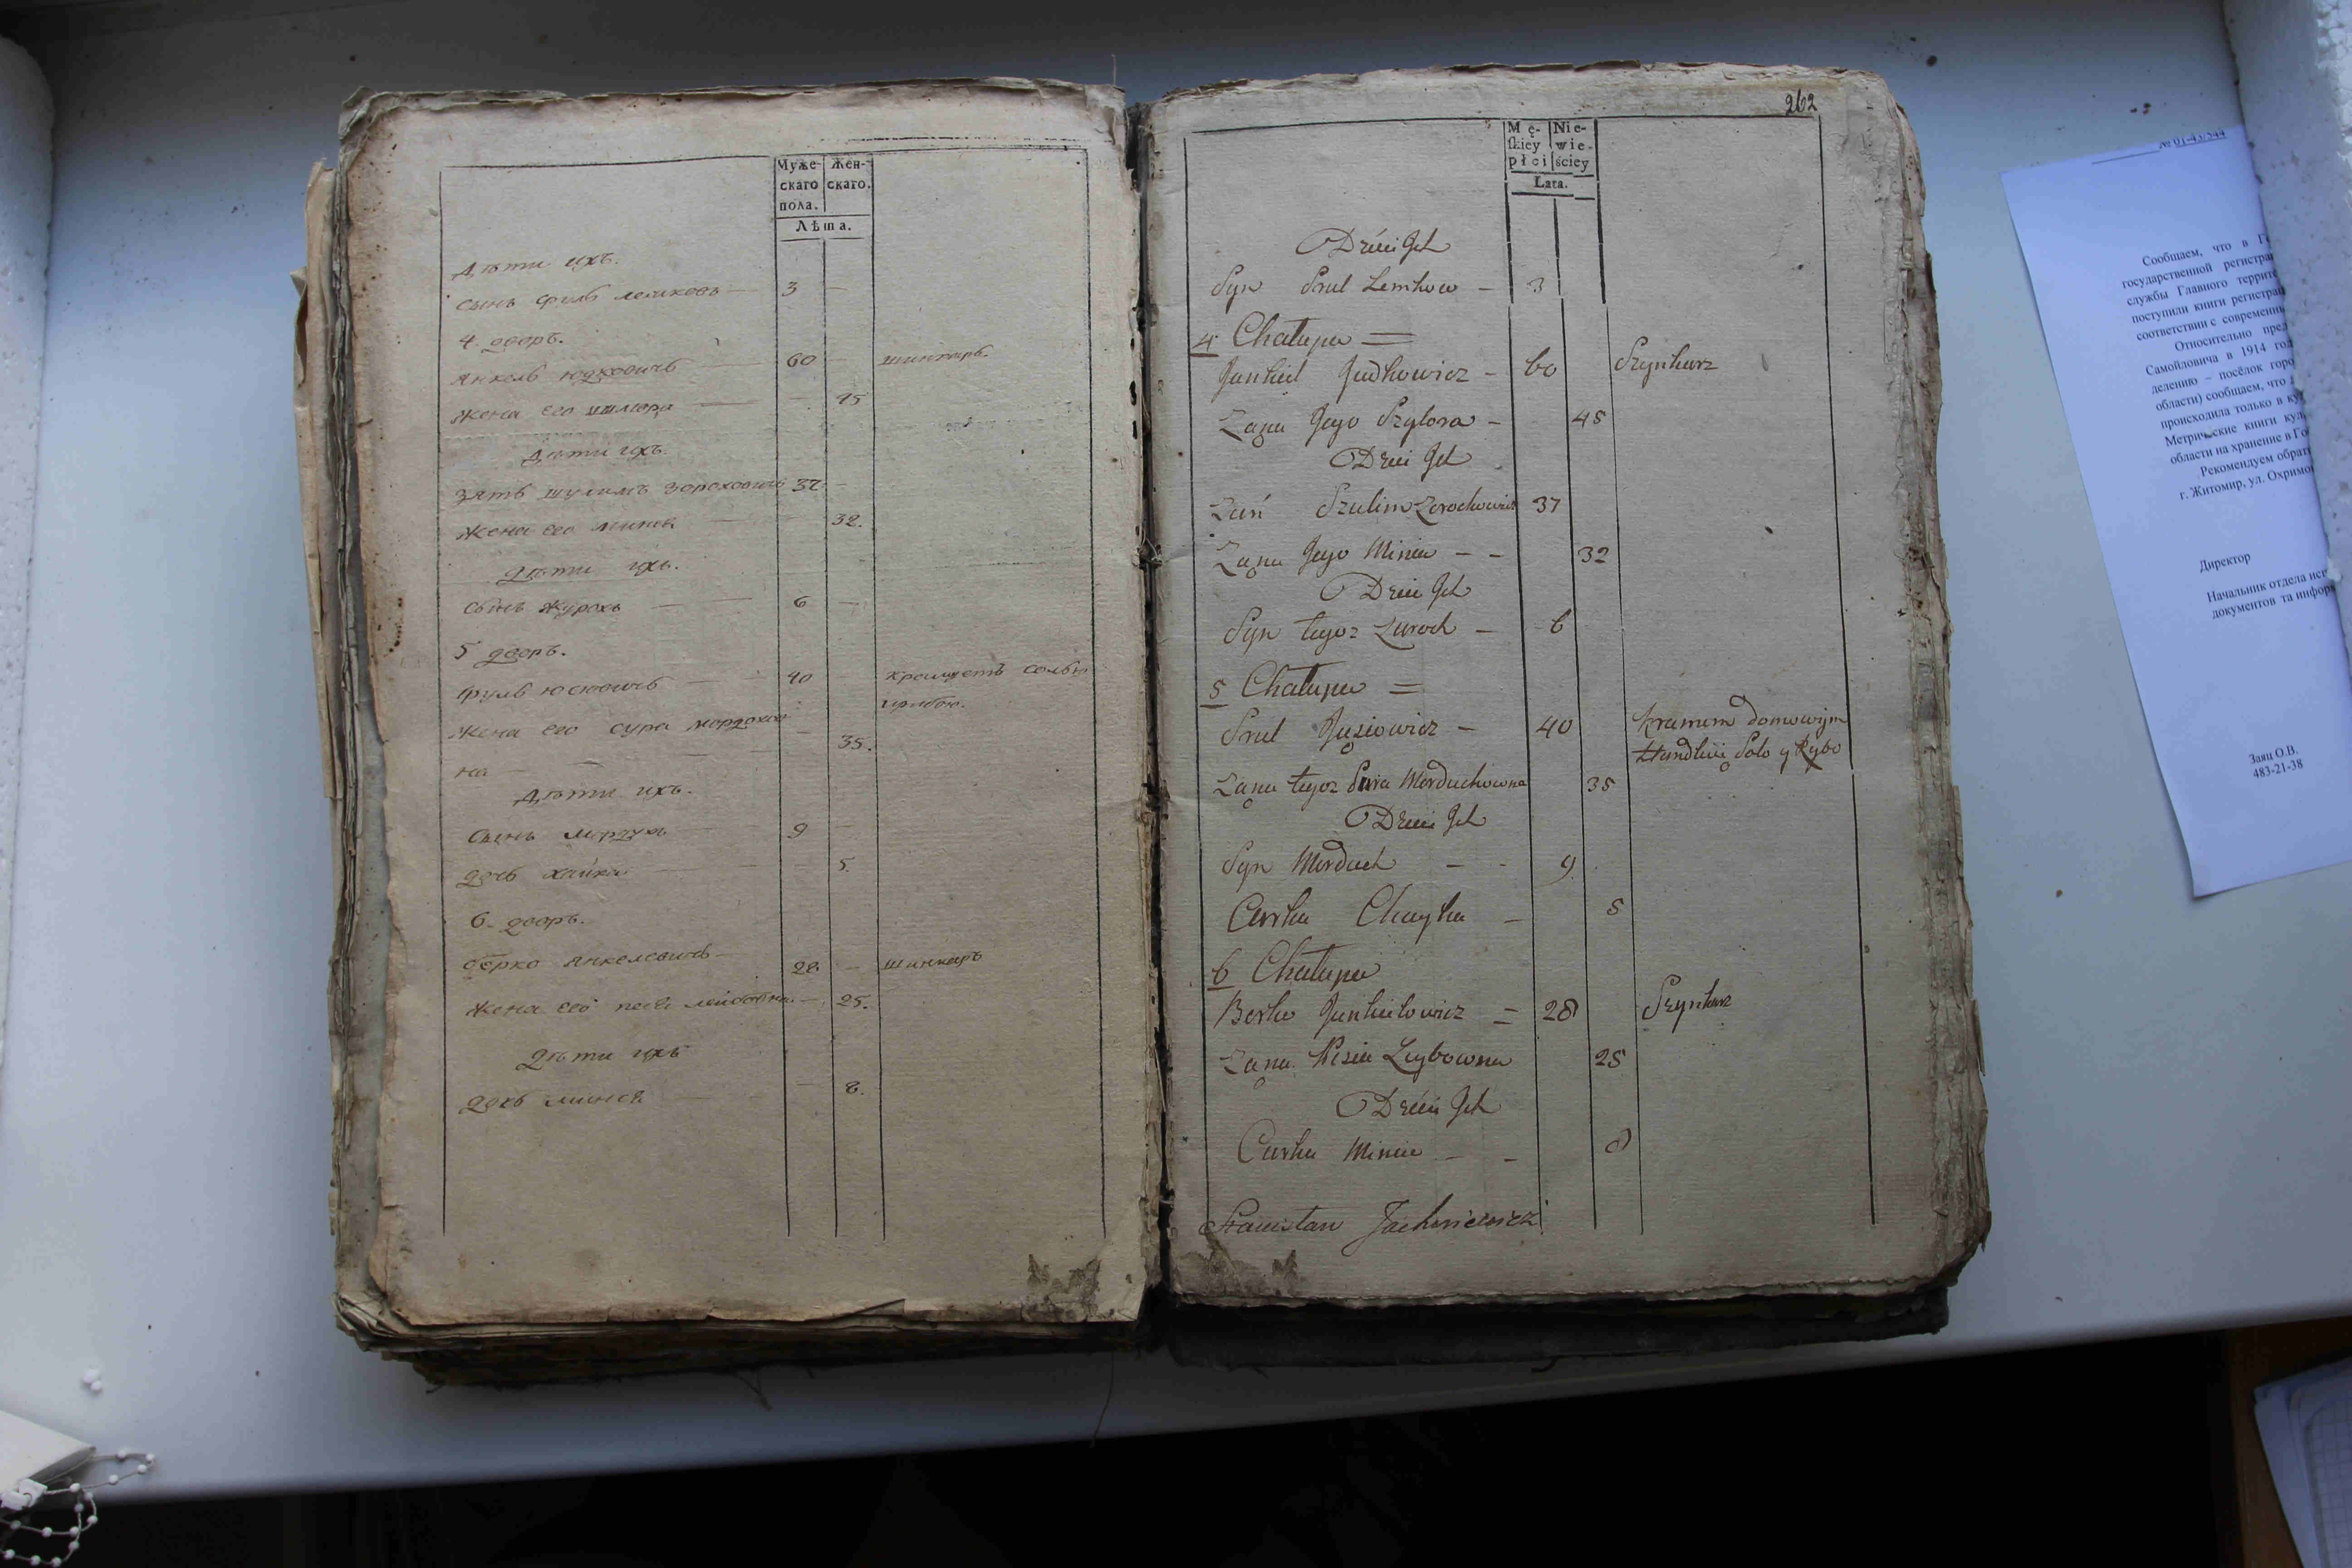 Муже-
скаго
пола.
Жен-
скаго.
Лѣта.
Дѣти ихъ.
сынъ Сруль лемковъ — 3 —
4. дворъ.
Янкель Юдковичь — 60 — шинкарь.
Жена его шлиора — — 45
Дѣти ихъ.
зять шулимъ Зороховичь 37 —
Жена его миня — — 32.
Дѣти ихъ.
Сынъ Журохъ — — 6 —
5 дворъ.
Сруль Юсиовичь — 40 —
солью
Жена его сура мордохов
на — — — 35.
Дѣти ихъ.
Сынъ мордухъ — 9 —
дочь хайка — — 5.
6. дворъ.
берко Янкелевичь — 28. — шинкарь
Жена его песя лейбовна. — 25.
Дѣти ихъ
дочь миня — — 8.
262
Mę-
skiey
płci
Nie-
wie-
ściey
Lata.
Dzieci Ich
Syn Srul Lemkow — 3
4 Chałupa =
Jankiel Judkowicz — 60 Szynkarz
Żąna Jego Szyfora — 45
Dzieci Ich
Zań Szulim Zorochowicz 37
Żąna Jego Minia — — 32
Dzieci Ich
Syn tegoz Zuroch — 6
5 Chałupa =
Srul Jusiowicz — 40 kramem domowym
Handluii Solo y Rybo
Żąna tegoz Sura Morduchowna 35
Dzieci Ich
Syn Morduch — - 9
Curka Chayka — 5
6 Chałupa
Berko Jankielowicz = 28 Szynkarz
Żąna Pesia Leybowna 25
Dzieci Ich
Curka Minia — — 8
Stanisław Jachniewicz
№ 01-43/544
Сообщаем, что в
государственной
службы Главного
поступили книги
соответствии с
Относительно
Самойловича в 1914
делению – посёлок
области) сообщаем, что
происходила только в
Метрические книги
области на хранение в
Рекомендуем
г. Житомир, ул.
Директор
Начальник отдела
документов та
Заяц О.В.
483-21-38